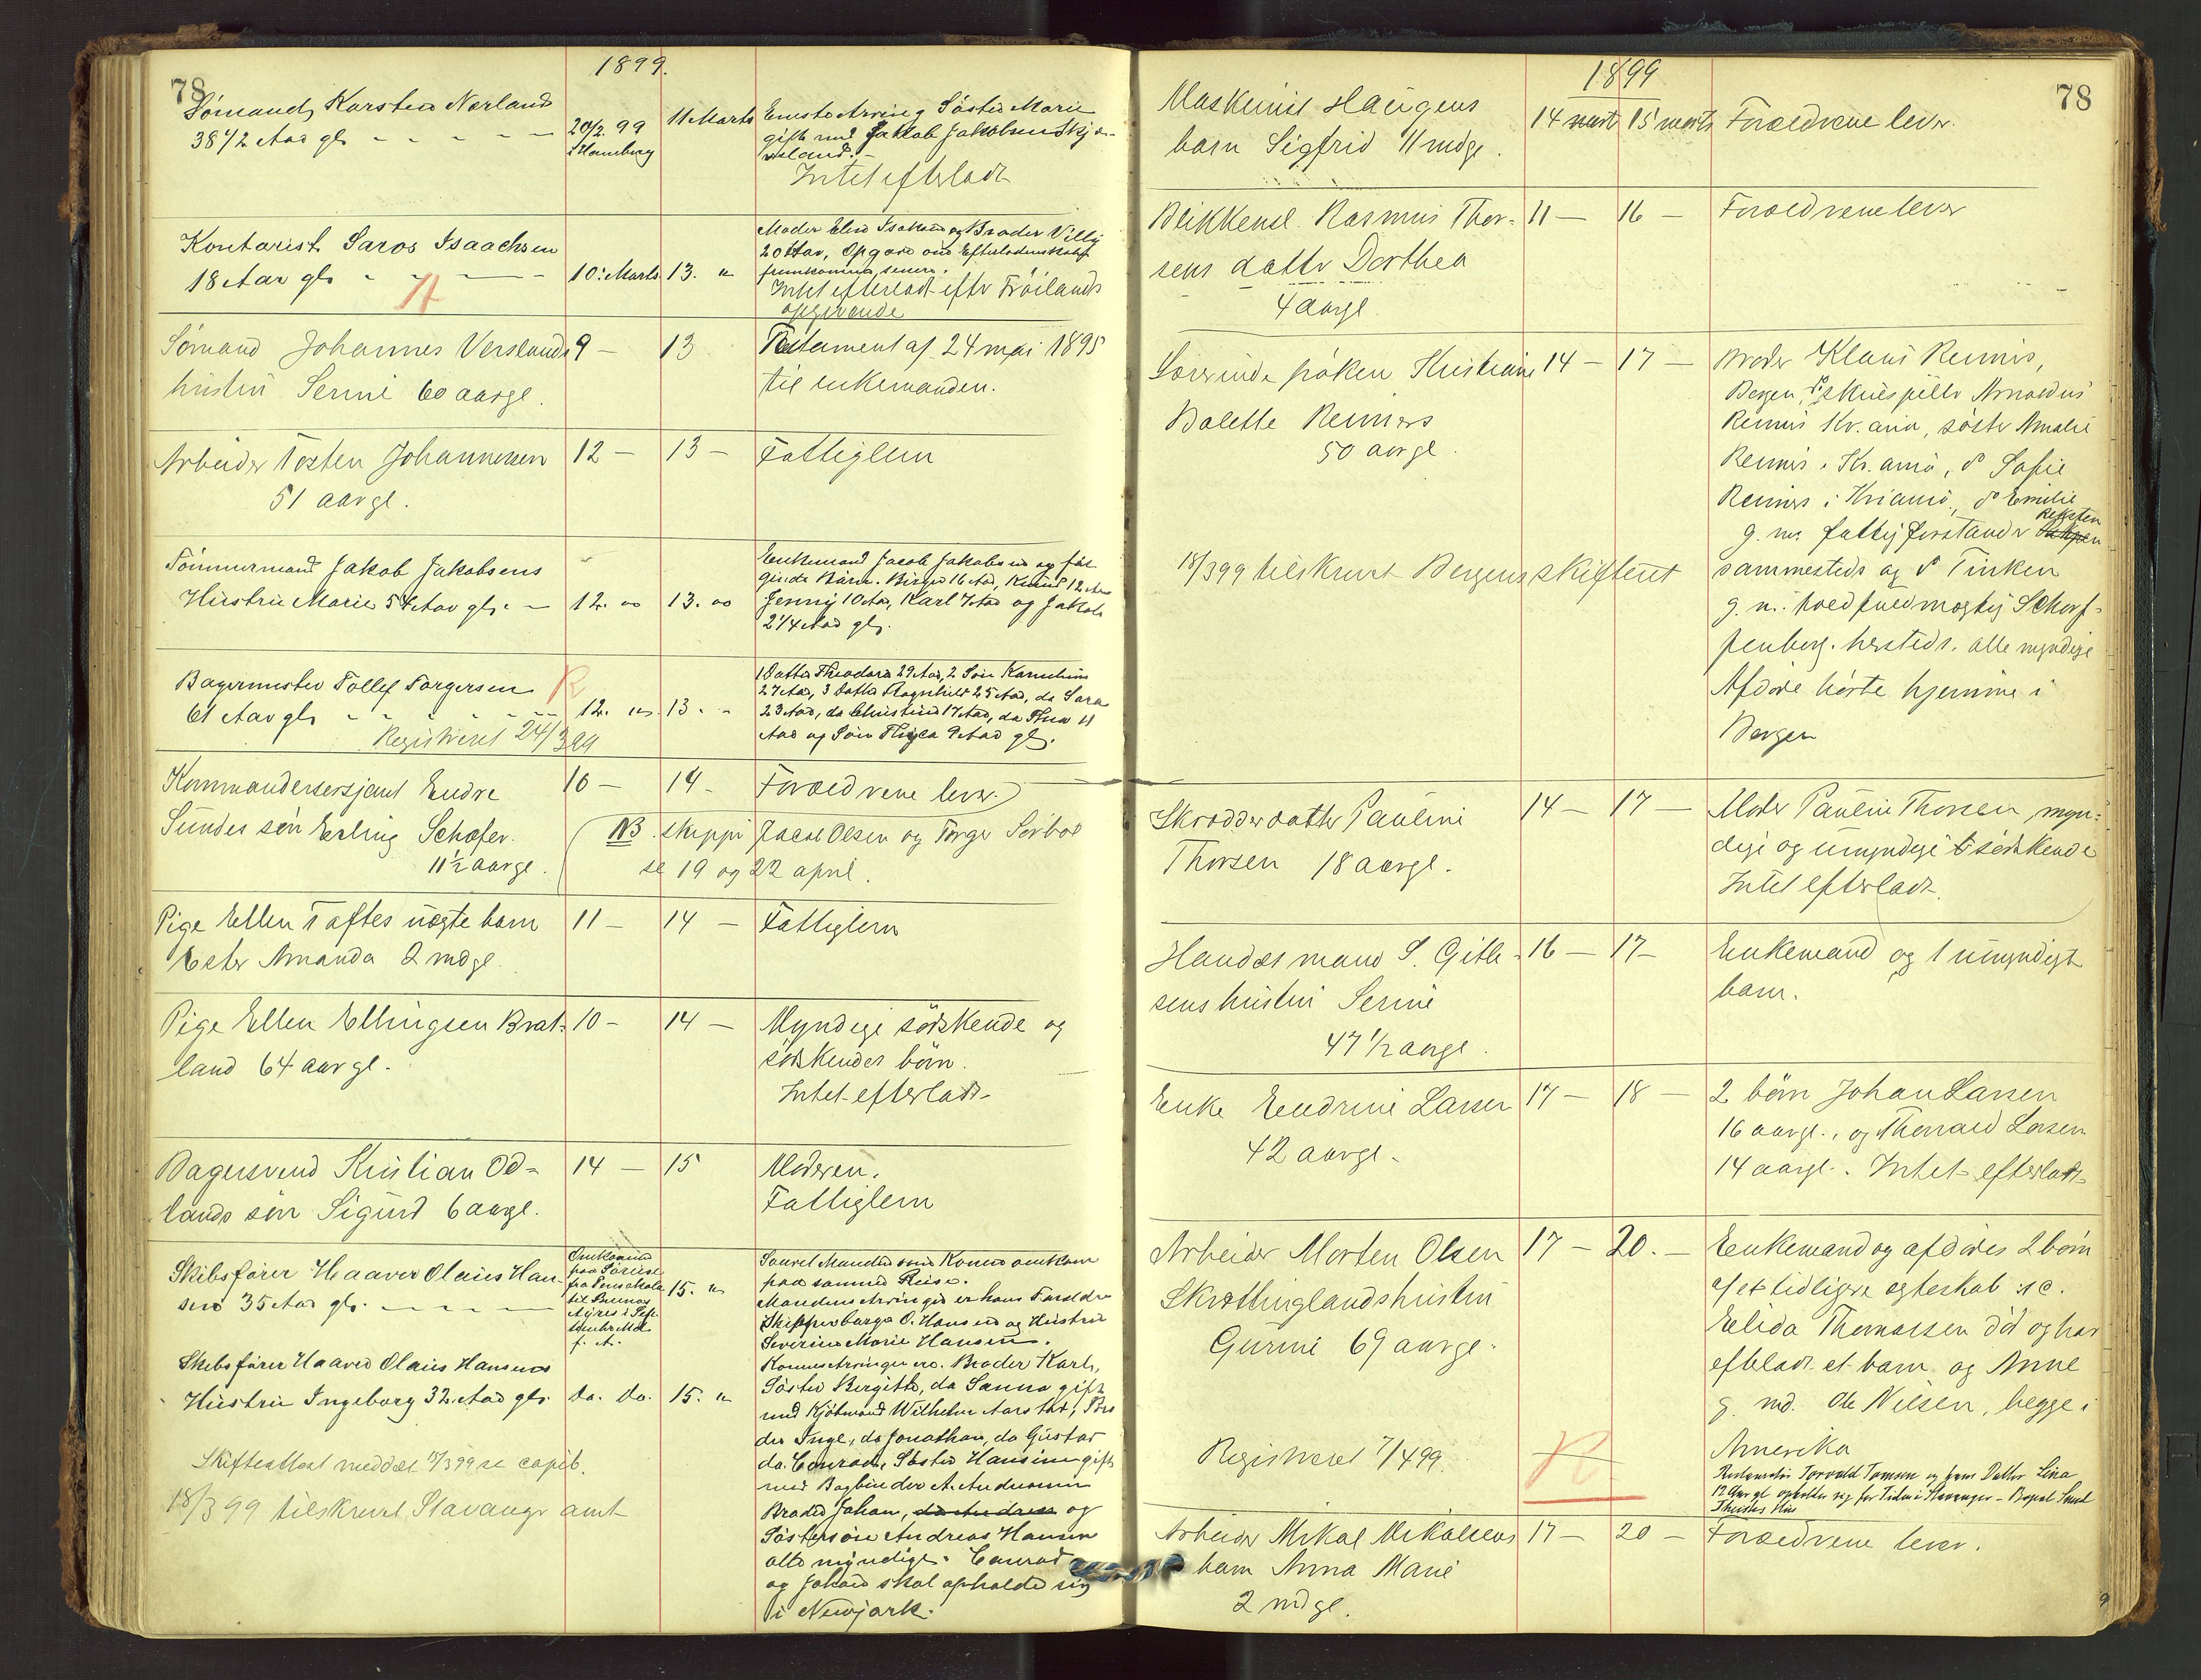 78
1899.
Sömand, Karsten Nærland
38 1/2 Aar gl.
20/2. 99
i Hamburg
11 Marts
Eneste Arving Söster Marie
gift med Jakob Jakobsen
Intet efterladt
Kontorist Saros Isaachsen
18 Aar gl.
10. Marts
13. "
Moder Elen Isaksen og Broder Villy
20 Aar, Opgave om Efterladenskab
fremkommer senere.
Intet efterladt efter Fröilands
opgivende
Sömand Johannes Verslands
hustru Serine 60 aargl.
9 —
13
Testament af 24 mai 1895
til enkemanden.
Arbeider Tosten Johannesen
51 aargl.
12 —
13 —
Fattiglem
Tömmermand Jakob Jakobsens
Hustru Marie 54 Aar gl.
12. "
13. "
Enkemand Jacob Jakobsen og föl
gende Börn. Birger 16 Aar, Knud 12 Aar
Jenny 10 Aar, Karl 7 Aar og Jakob
2 1/4 Aar gl.
Bagermester Tollef Torgersen R
61 Aar gl.
12. "
13. "
Registreret 24/3 99
1 Datter Theodora 29 Aar, 2 Sön Kornelius
27 Aar, 3 Datter Ragnhild 25 Aar, do Sara
23 Aar, do Christine 17 Aar, do Thea 11
Aar og Sön 9 Aar gl.
Kommandersersjant Endre
Sundes sön Erling Schæfer.
11 1/2 aargl.
10 —
14 —
Forældrene lever.
NB. skipper Jacob Olsen og Torger Sörboe
se 19 og 22 april.
Pige Ellen Taftes uægte barn
Ester Amanda 2 mdgl.
11 —
14 —
Fattiglem
Pige Ellen Ellingsen Brat-
land 64 aargl.
10 —
14 —
Myndige söskende og
söskendes börn.
Intet efterladt
Bagersvend Kristian Od-
lands sön Sigurd 6 aargl.
14 —
15
Moderen.
Fattiglem
Skibsförer Haaver Olaus Han-
sen 35 Aar gl.
Omkommet
paa Söreise
fra Pensakola
til Buenos
Ayres i
f. A.
15. "
Saavel Manden som Konen omkom
paa samme Reise.
Mandens Arvinger er hans Forældre
Skipperborger O. Hansen og Hustru
Severine Marie Hansen.
Skibsförer Haaver Olaus Hansens
Hustru Ingeborg 32 Aar gl.
do. do.
15. "
Konens Arvinger ere. Broder Karl,
Söster Bergitte, do Sanna gift
med Kjöbmand Wilhelm Aarstad, Bro
der Inge, do Jonathan, do Gustav
do. Conrad, Söster Hansine gift
med Bogbinder A. Andersen
Broder Johan, do Andreas og
Söstersön Andreas Hansen
alle myndige. Conrad
og Johan skal opholde sig
i Newjork.
Skifteattest meddelt 17/3 99 se copib.
18/3 99 tilskrevet Stavanger amt
1899
78
Maskinist Haugens
barn Sigfrid 11 mdgl.
14 marts
15 marts
Forældrene lever.
Blikkensl. Rasmus Thor-
sens datter Dorthea
4 aargl.
11 —
16 —
Forældrene lever
Lærerinde fröken Kristiane
Dalette Reimers
50 aargl.
14 —
17 —
Broder Klaus Reimers,
Bergen, do skuespiller Arnoldus
Reimers Kr.ania, söster Amalie
Reimers i Kr.ania, do Sofie
Reimers i Kr.ania, do Emilie
g. m. fattigforstander Reksten
sammesteds og do Tinken
g. m. politifuldmægtig Scharf-
fenberg. hersteds. alle myndige
Afdöde hörte hjemme i
Bergen
18/3 99 tilskrevet Bergens skifteret
Skrædderdatter Pauline
Thorsen 18 aargl.
14 —
17 —
Moder Pauline Thorsen, myn-
dige og umyndige söskende
Intet efterladt.
Handelsmand S. Gitle-
sens hustru Serine
47 1/2 aargl.
16 —
17 —
Enkemand og 1 umyndigt
barn.
Enke Endrine Larsen
42 aargl.
17 —
18 —
2 börn Johan Larsen
16 aargl., og Thorvald Larsen
14 aargl. Intet efterladt
Arbeider Morten Olsen
Skrætlinglands hustru
Gurine 69 aargl.
17 —
20. —
Enkemand og afdödes 2 börn
af et tidligere egteskab :
Elida Thomassen död og har
efterladt et barn og Anne
g. m. Ole Nilsen, begge i
Amerika
Registreret 7/4 99
R
Torvald Tomsen og hans Datter Lina
12 Aar gl opholder sig for Tiden i Stavanger - Bopæl
Arbeider Mikal Mikalsens
barn Anna Marie
2 mdgl.
17 —
20 —
Forældrene lever.